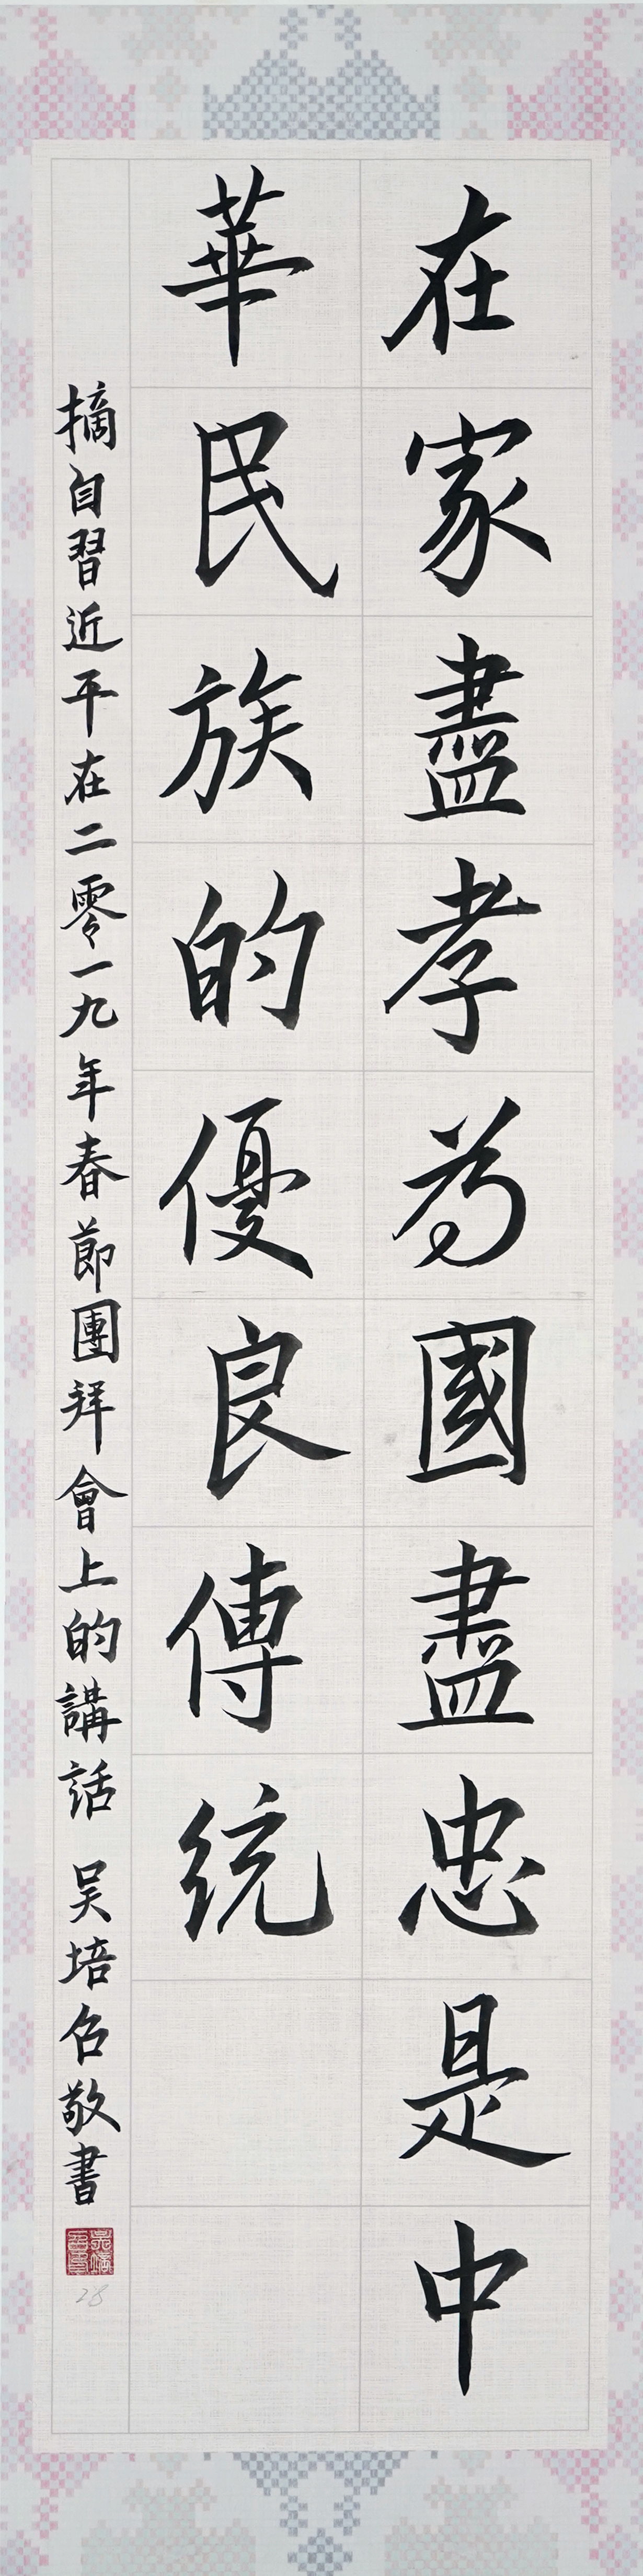 在家盡孝为國盡忠是中
華民族的優良傳统
摘自習近平在二零一九年春節團拜會上的講話 吴培名敬書
28